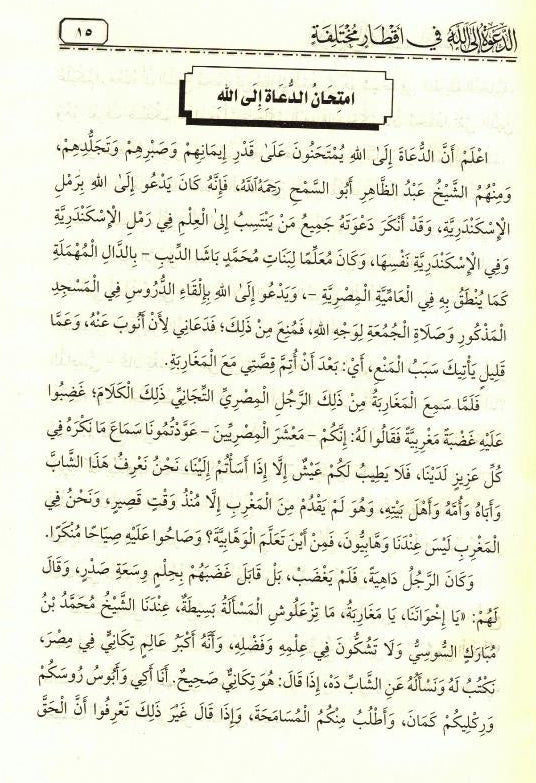 الدَّعْوَةُ إِلَى اللهِ فِي أَقْطَارٍ مُخْتَلِفَةٍ
١٥
امتِحَانُ الدُّعَاةِ إِلَى اللهِ
اعْلَمْ أَنَّ الدُّعَاةَ إِلَى اللهِ يُمْتَحَنُونَ عَلَى قَدْرِ إِيمَانِهِمْ وَصَبْرِهِمْ وَتَجَلُّدِهِمْ،
وَمِنْهُمُ الشَّيْخُ عَبْدُ الظَّاهِرِ أَبُو السَّمْحِ رَحِمَهُ اللَّهُ، فَإِنَّهُ كَانَ يَدْعُو إِلَى اللهِ بِرَمْلِ
الْإِسْكَنْدَرِيَّةِ، وَقَدْ أَنْكَرَ دَعْوَتَهُ جَمِيعُ مَنْ يَنْتَسِبُ إِلَى الْعِلْمِ فِي رَمْلِ الْإِسْكَنْدَرِيَّةِ
وَفِي الْإِسْكَنْدَرِيَّةِ نَفْسِهَا، وَكَانَ مُعَلِّمًا لِبَنَاتِ مُحَمَّدٍ بَاشَا الدِّيبِ - بِالدَّالِ الْمُهْمَلَةِ
كَمَا يُنْطَقُ بِهِ فِي الْعَامِّيَّةِ الْمِصْرِيَّةِ -، وَيَدْعُو إِلَى اللهِ بِإِلْقَاءِ الدُّرُوسِ فِي الْمَسْجِدِ
الْمَذْكُورِ وَصَلَاةِ الْجُمُعَةِ لِوَجْهِ اللهِ، فَمُنِعَ مِنْ ذَلِكَ؛ فَدَعَانِي لِأَنْ أَنُوبَ عَنْهُ، وَعَمَّا
قَلِيلٍ يَأْتِيكَ سَبَبُ الْمَنْعِ، أَيْ: بَعْدَ أَنْ أُتِمَّ قِصَّتِي مَعَ الْمَغَارِبَةِ.
فَلَمَّا سَمِعَ الْمَغَارِبَةُ مِنْ ذَلِكَ الرَّجُلِ الْمِصْرِيِّ التِّجَانِيِّ ذَلِكَ الْكَلَامَ؛ غَضِبُوا
عَلَيْهِ غَضْبَةً مَغْرِبِيَّةً فَقَالُوا لَهُ: إِنَّكُمْ - مَعْشَرَ الْمِصْرِيِّينَ - عَوَّدْتُمُونَا سَمَاعَ مَا نَكْرَهُ فِي
كُلِّ عَزِيزٍ لَدَيْنَا، فَلَا يَطِيبُ لَكُمْ عَيْشٌ إِلَّا إِذَا أَسَأْتُمْ إِلَيْنَا، نَحْنُ نَعْرِفُ هَذَا الشَّابَّ
وَأَبَاهُ وَأُمَّهُ وَأَهْلَ بَيْتِهِ، وَهُوَ لَمْ يَقْدُمْ مِنَ الْمَغْرِبِ إِلَّا مُنْذُ وَقْتٍ قَصِيرٍ، وَنَحْنُ فِي
الْمَغْرِبِ لَيْسَ عِنْدَنَا وَهَّابِيُّونَ، فَمِنْ أَيْنَ تَعَلَّمَ الْوَهَّابِيَّةَ؟ وَصَاحُوا عَلَيْهِ صِيَاحًا مُنْكَرًا.
وَكَانَ الرَّجُلُ دَاهِيَةً، فَلَمْ يَغْضَبْ، بَلْ قَابَلَ غَضَبَهُمْ بِحِلْمٍ وَسِعَةِ صَدْرٍ، وَقَالَ
لَهُمْ: «يَا إِخْوَانَنَا، يَا مَغَارِبَةُ، مَا تِزْعَلُوشِ الْمَسْأَلَةُ بَسِيطَةٌ، عِنْدَنَا الشَّيْخُ مُحَمَّدُ بْنُ
مُبَارَكٍ السُّوسِيُّ وَلَا تَشُكُّونَ فِي عِلْمِهِ وَفَضْلِهِ، وَأَنَّهُ أَكْبَرُ عَالِمٍ تِكَانِيٍّ فِي مِصْرَ،
نَكْتُبُ لَهُ وَنَسْأَلُهُ عَنِ الشَّابِّ دَهْ، إِذَا قَالَ: هُوَ تِكَانِيٌّ صَحِيحٌ. أَنَا آكِي وَأَبُوسُ رُوسَكُمْ
وَرِكْلِيكُمْ كَمَانَ، وَأَطْلُبُ مِنْكُمُ الْمُسَامَحَةَ، وَإِذَا قَالَ غَيْرَ ذَلِكَ تَعْرِفُوا أَنَّ الْحَقَّ